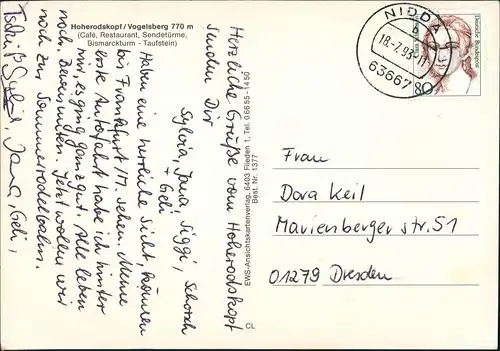 Hoherodskopf/Vogelsberg 770 m
(Café, Restaurant, Sendetürme,
Bismarckturm - Taufstein)
Herzliche Grüße vom Hoherodskopf
senden Dir
Sylvia, Jana, Siggi, Schorsch
+ Geli
Haben eine herrliche Sicht, können
bis Frankfurt/M. sehen. Meine
erste Autofahrt habe ich hinter
mir, es ging ganz gut. Alle leben
noch. Jetzt wollen wir
noch zur Sommerrodelbahn.
Tschüß Sylvia, Jana, Geli,
EWS-Ansichtskartenverlag, 6403 Flieden 1, Tel. 06655-1450
Best. Nr. 1377
CL
NIDDA
b
18.-7.93
63667
Deutsche Bundespost
80
Frau
Dora Keil
Marienberger str. 51
01279 Dresden